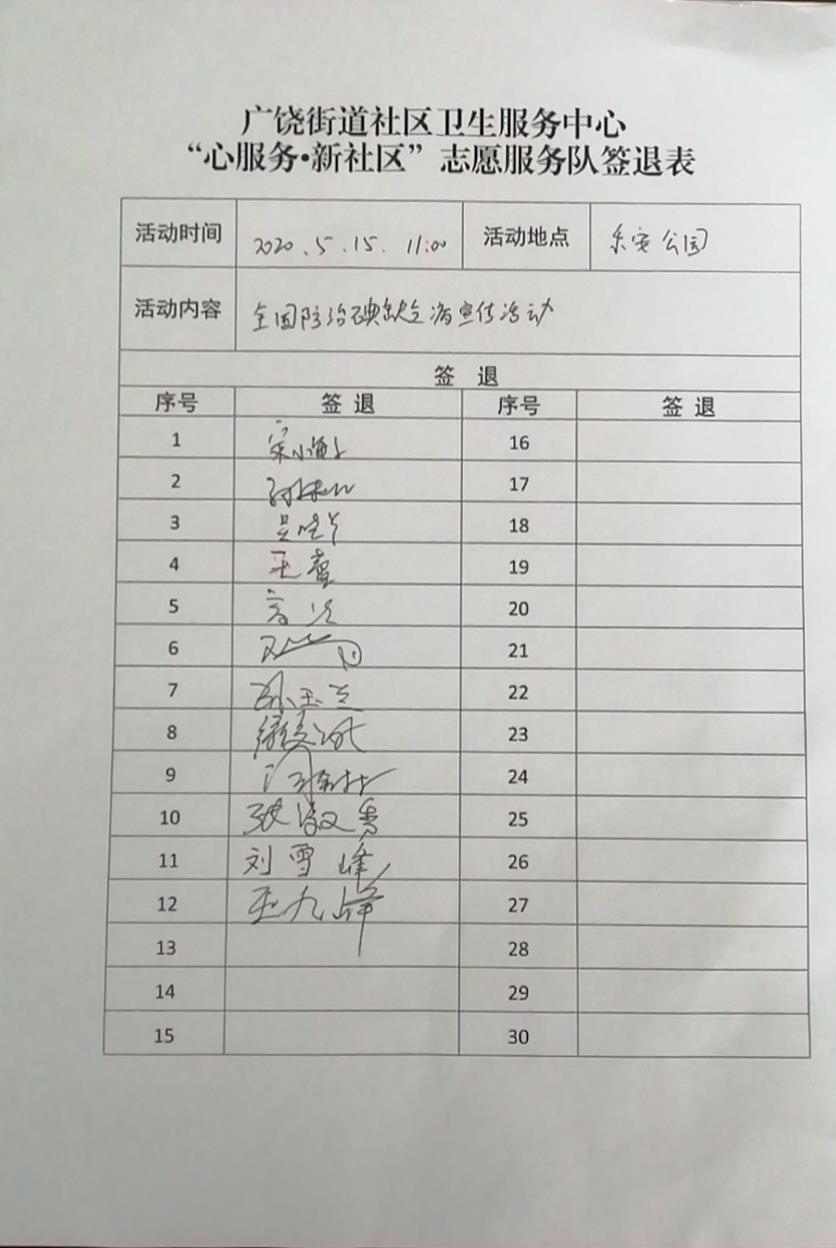 广饶街道社区卫生服务中心
“心服务•新社区”志愿服务队签退表
活动时间 2020.5.15. 11:00 活动地点 乐安公园
活动内容 全国防治碘缺乏病宣传活动
签 退
序号 签 退 序号 签 退
1 16
2 17
3 18
4 王 19
5 20
6 21
7 孙玉兰 22
8 23
9 24
10 张俊秀 25
11 刘雪峰 26
12 王九峰 27
13 28
14 29
15 30